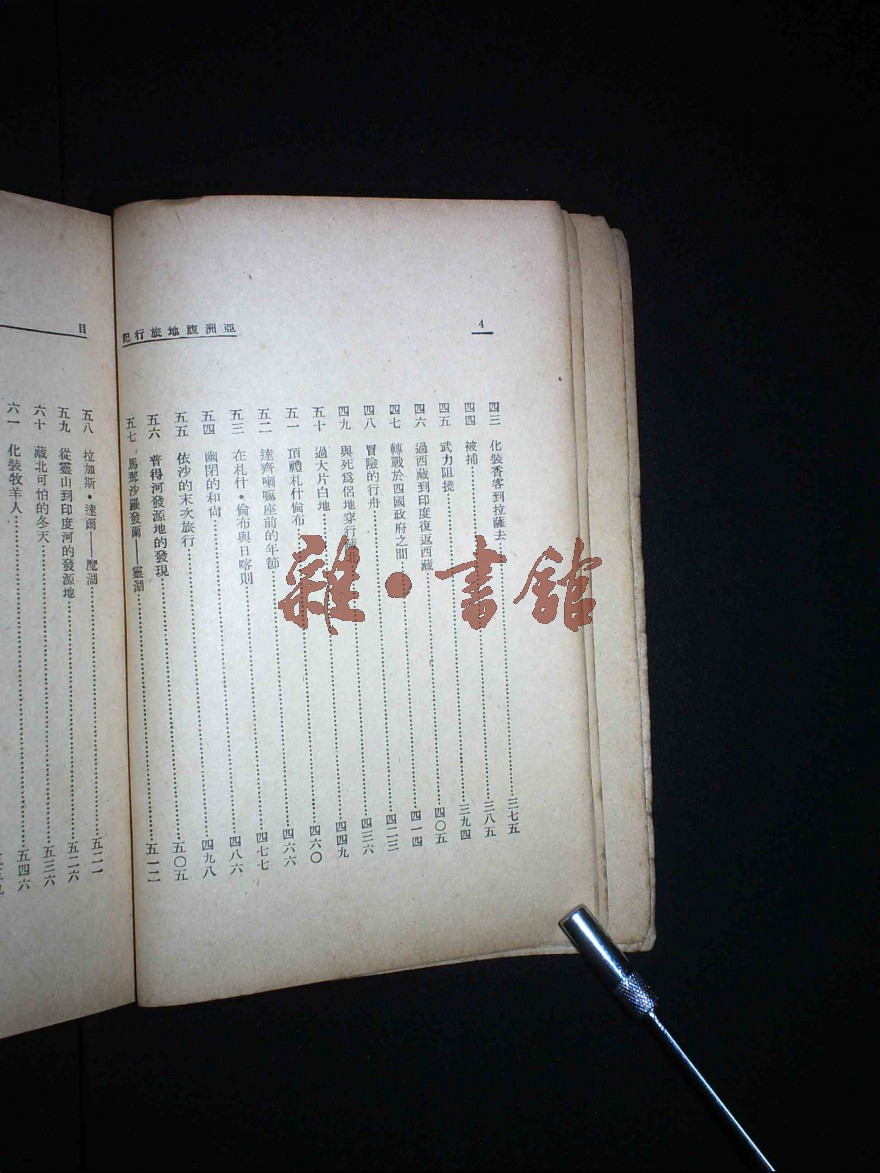 4
亞洲腹地旅行記
四三 化裝香客到拉薩去……三七五
四四 被捕……三八五
四五 武力阻撓……三九四
四六 過西藏到印度復返西藏……四〇五
四七 轉戰於四國政府之間……四一四
四八 冒險的行舟……四二三
四九 與死爲侶地穿行藏北……四三六
五十 過大片白地……四四九
五一 頂禮札什倫布……四六〇
五二 達齊喇嘛座前的年節……四六六
五三 在札什•倫布與日喀則……四七七
五四 幽閉的和尙……四八六
五五 依沙的末次旅行……四九八
五六 普得河發源地的發現……五〇五
五七 馬那沙羅發爾——靈湖……五一二
目
五八 拉加斯•達爾——魔湖……五二一
五九 從靈山到印度河的發源地……五二六
六十 藏北可怕的冬天……五三六
六一 化裝牧羊人……五四六
雜•書館